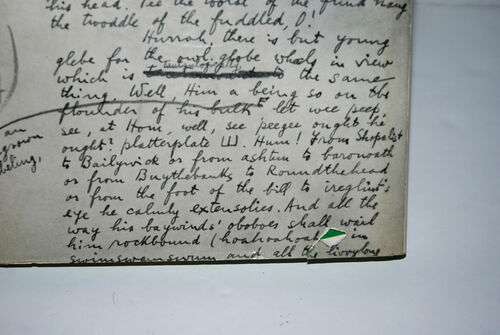 his head. Tee the tootal of the fluid hang
the twoddle of the fuddled, O!
Hurrah, there is but young
glebe for the owl globe wheels in view
tautaulogically
which is the same
thing. Well, Him a being so on the
flounder of his bulk let wee peep,
see, at Hom, well, see peegee ought he
an
ought? platterplate Ш. Hum! From Shopalist
grown
to Bailywick or from ashtun to baronoath
beling,
or from Buythebanks to Roundthehead
or from the foot of the bill to ireglint's
eye he calmly extensolies. And all the
way his baywinds' oboboes shall wail
him rockbound (hoahoahoah in
swimswamswum and all the livvylong